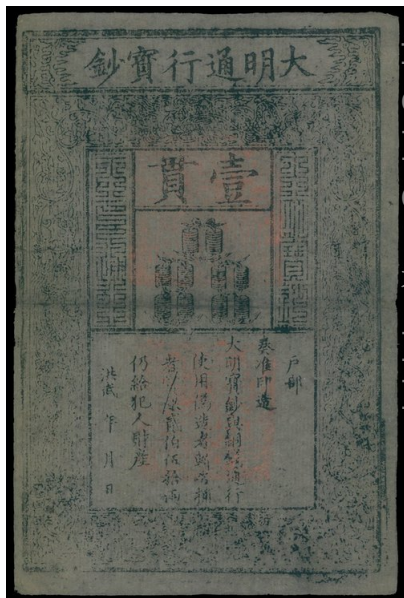 大明通行寶鈔
壹貫
戶部
奏准印造
大明寶鈔與銅錢通行
使用偽造者斬告捕
者賞銀貳伯伍拾兩
仍給犯人財産
洪武 年 月 日